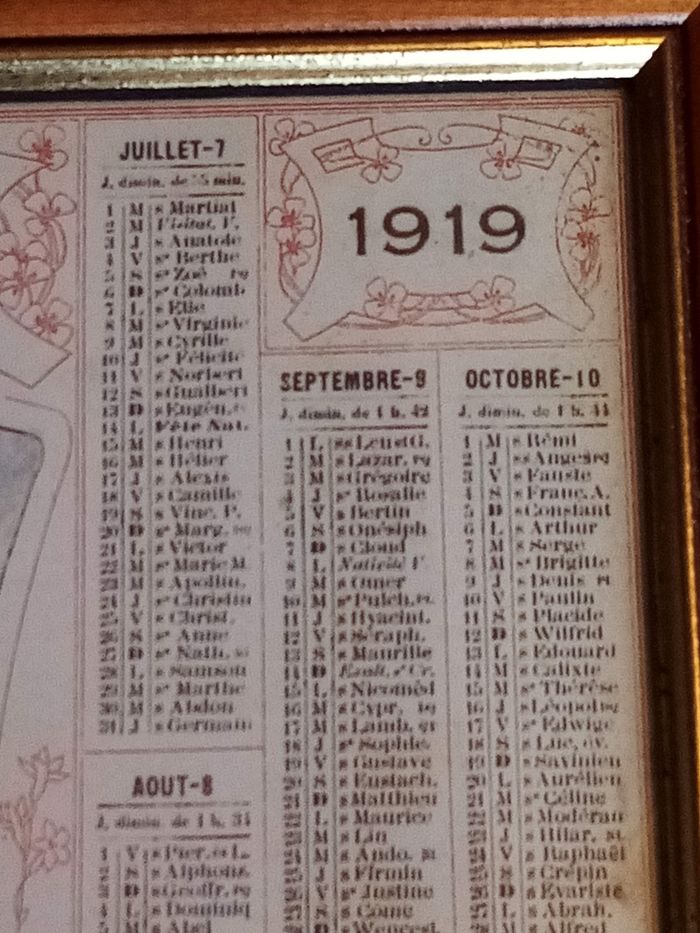 JUILLET-7
J. dimin. de 55 min.
1 M s Martial
2 M Visitat. V.
3 J s Anatole
4 V sᵉ Berthe
5 S sᵉ Zoé PQ
6 D sᵉ Colomb
7 L s Elie
8 M sᵉ Virginie
9 M s Cyrille
10 J sᵉ Félicité
11 V s Norbert
12 S s Gualbert
13 D s Eugèn.
14 L Fête Nat.
15 M s Henri
16 M s Hélier
17 J s Alexis
18 V s Camille
19 S s Vinc. P.
20 D sᵉ Marg.
21 L s Victor
22 M sᵉ Marie M.
23 M s Apollin.
24 J sᵉ Christin
25 V s Christ.
26 S sᵉ Anne
27 D s Nath.
28 L s Samson
29 M sᵉ Marthe
30 M s Abdon
31 J s Germain
AOUT-8
J. dimin. de 1 h. 34
1 V s Pier. ès L.
2 S s Alphons.
3 D s Geoffr. PQ
4 L s Dominiq
5 M s Abel
1919
SEPTEMBRE-9
J. dimin. de 1 h. 42
1 L ss Leu et G.
2 M s Lazar. PQ
3 M s Grégoire
4 J sᵉ Rosalie
5 V s Bertin
6 S s Onésiph
7 D s Cloud
8 L Nativité V.
9 M s Omer
10 M sᵉ Pulch.
11 J s Hyacint.
12 V s Séraph.
13 S s Maurille
14 D Exalt. sᵉ Cr.
15 L s Nicomèd
16 M s Cypr. DQ
17 M s Lamb. QT
18 J sᵉ Sophie
19 V s Gustave
20 S s Eustach.
21 D s Matthieu
22 L s Maurice
23 M s Lin
24 M s Ando. NL
25 J s Firmin
26 V sᵉ Justine
27 S s Côme
28 D s Wencesl.
OCTOBRE-10
J. dimin. de 1 h. 44
1 M s Rémi
2 J ss Anges PQ
3 V s Fauste
4 S s Franç. A.
5 D s Constant
6 L s Arthur
7 M s Serge
8 M sᵉ Brigitte
9 J s Denis PL
10 V s Paulin
11 S s Placide
12 D s Wilfrid
13 L s Edouard
14 M s Calixte
15 M sᵉ Thérèse
16 J s Léopol DQ
17 V sᵉ Edwige
18 S s Luc, év.
19 D s Savinien
20 L s Aurélien
21 M sᵉ Céline
22 M s Modéran
23 J s Hilar. NL
24 V s Raphaël
25 S s Crépin
26 D s Evariste
27 L s Abrah.
28 M s Alfred